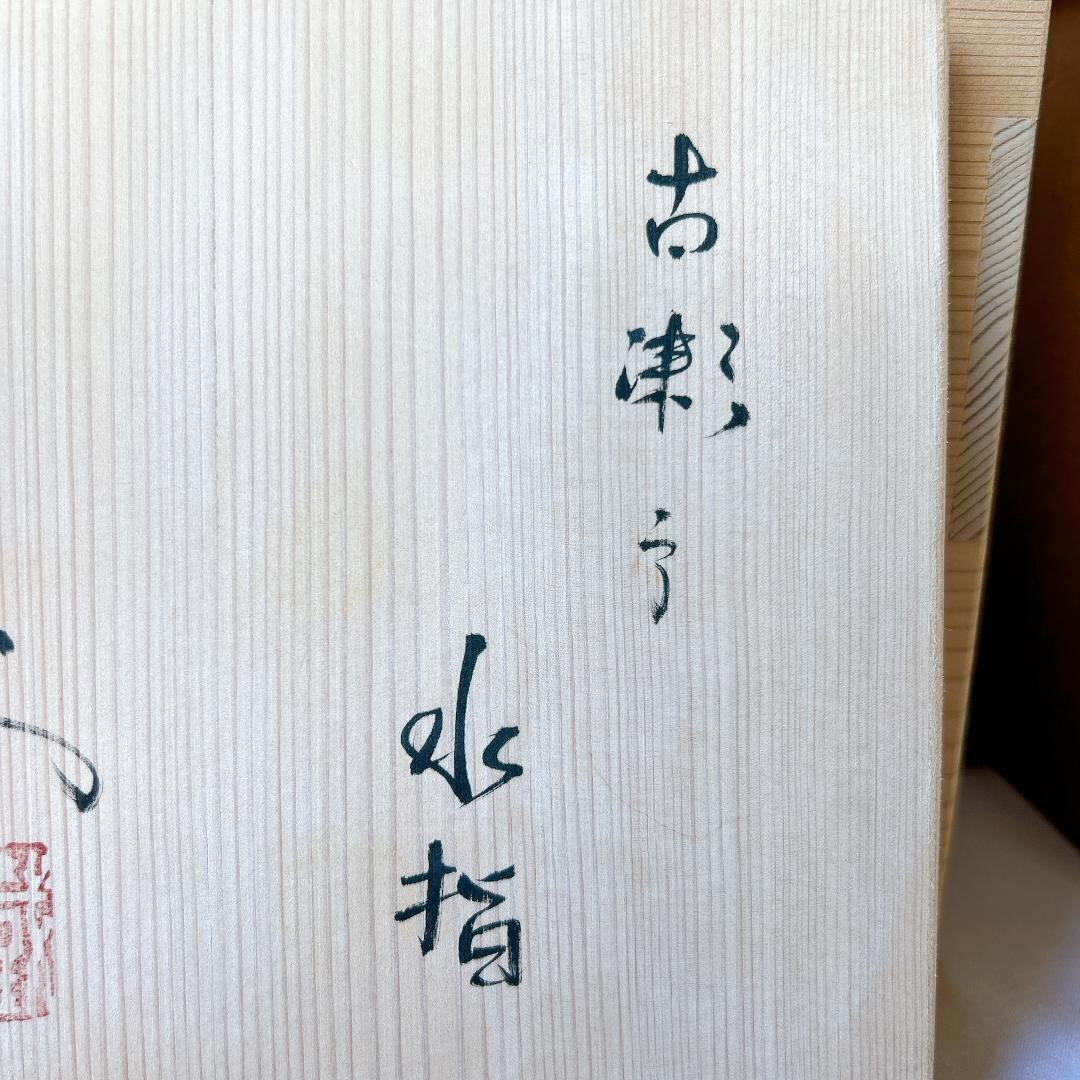 古瀬戸
水指